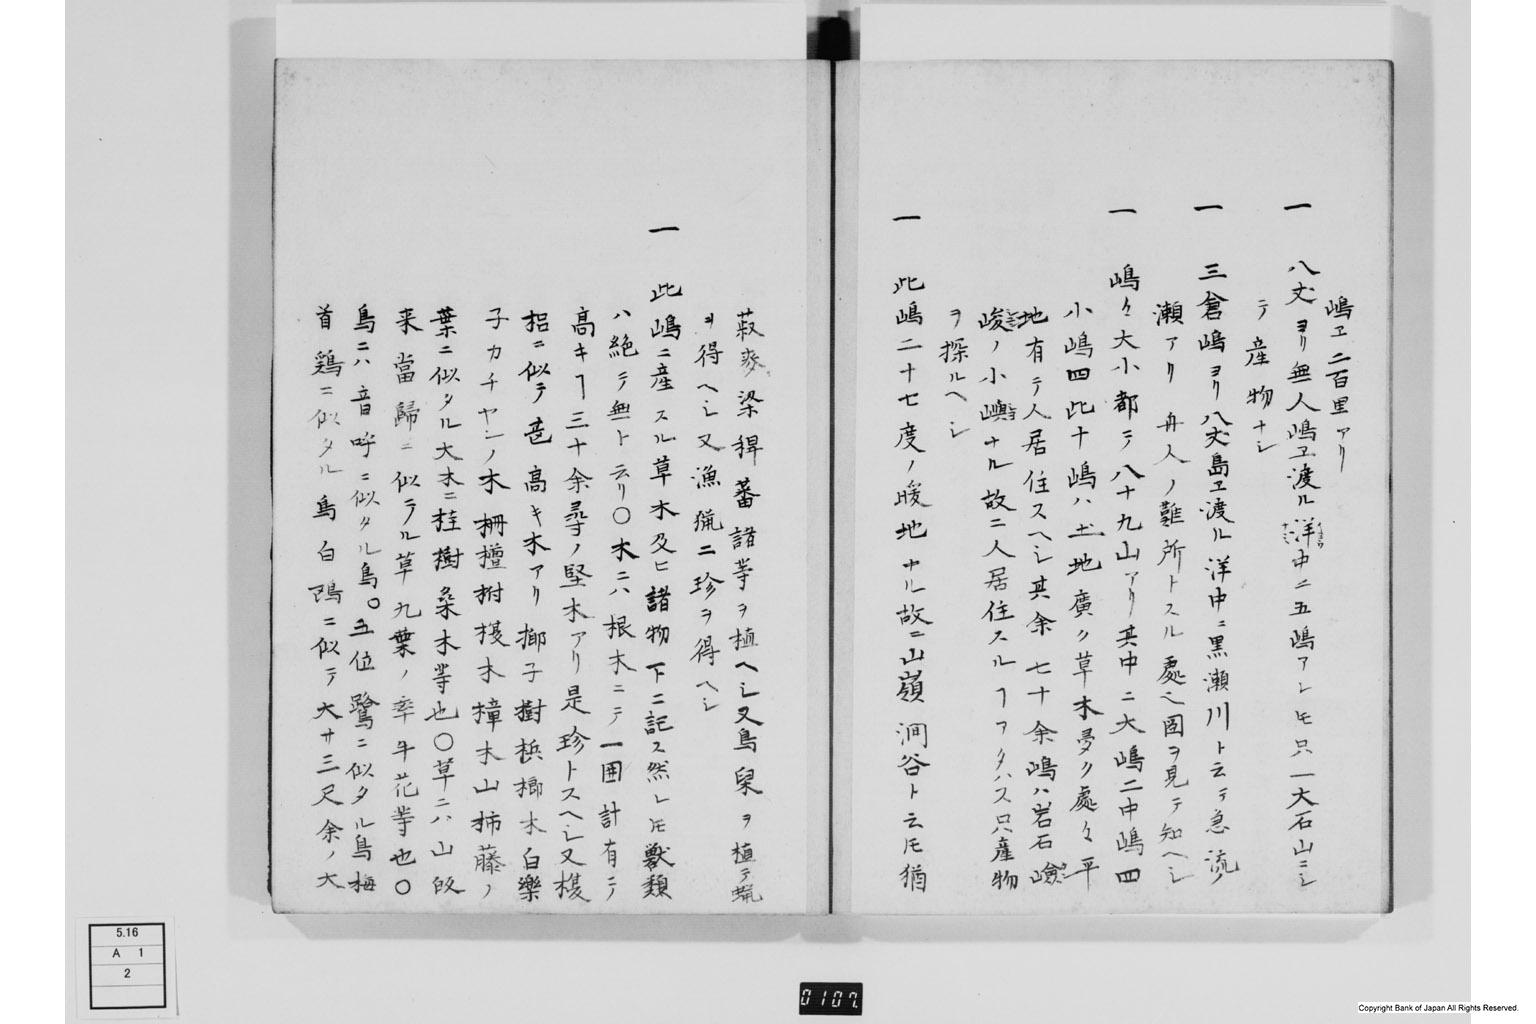 嶋ヱ二百里アリ
一 八丈ヨリ無人嶋ヱ渡ル洋中ニ五嶋アレ𪜈只一大石山ニシ
テ産物ナシ
一 三倉嶋ヨリ八丈島ヱ渡ル洋中ニ黒瀬川ト云テ急流ノ
瀬アリ舟人ノ難所トスル處也図ヲ見テ知ヘシ
一 嶋々大小都テ八十九山アリ其中ニ大嶋二中嶋四
小嶋四此十嶋ハ土地廣ク草木多ク處々平
地有テ人居住スヘシ其余七十余嶋ハ岩石嶮
峻ノ小嶼ナル故ニ人居住スルヿアタハス只産物
ヲ探ルヘシ
一 此嶋二十七度ノ暖地ナル故ニ山嶺澗谷ト云𪜈猶
菽麥粱稗蕃諸等ヲ植ヘシ又烏臼ヲ植テ蝋
ヲ得ヘシ又漁猟ニ珍ヲ得ヘシ
一 此嶋ニ産スル草木及ヒ諸物下ニ記ス然レ𪜈獣類
ハ絶テ無ト云リ〇木ニハ根木ニテ一囲計有テ
高キヿ三十余尋ノ堅木アリ是珍トスヘシ又椶
梠ニ似テ 高キ木アリ 揶子樹 梹榔木 白樂
子 カチヤンノ木 栴檀 椶木 樟木 山柿 藤ノ
葉ニ似タル大木ニ桂樹桑木等也〇草ニハ山
来 當歸ニ似テル草 九葉ノ牽牛花等也〇
鳥ニハ音呼ニ似タル鳥。五位鷺ニ似タル鳥 梅
首鶏ニ似タル鳥 白 ニ似テ大サ三尺余ノ大
5.16
A 1
2
0107.
Copyright Bank of Japan All Rights Reserved.